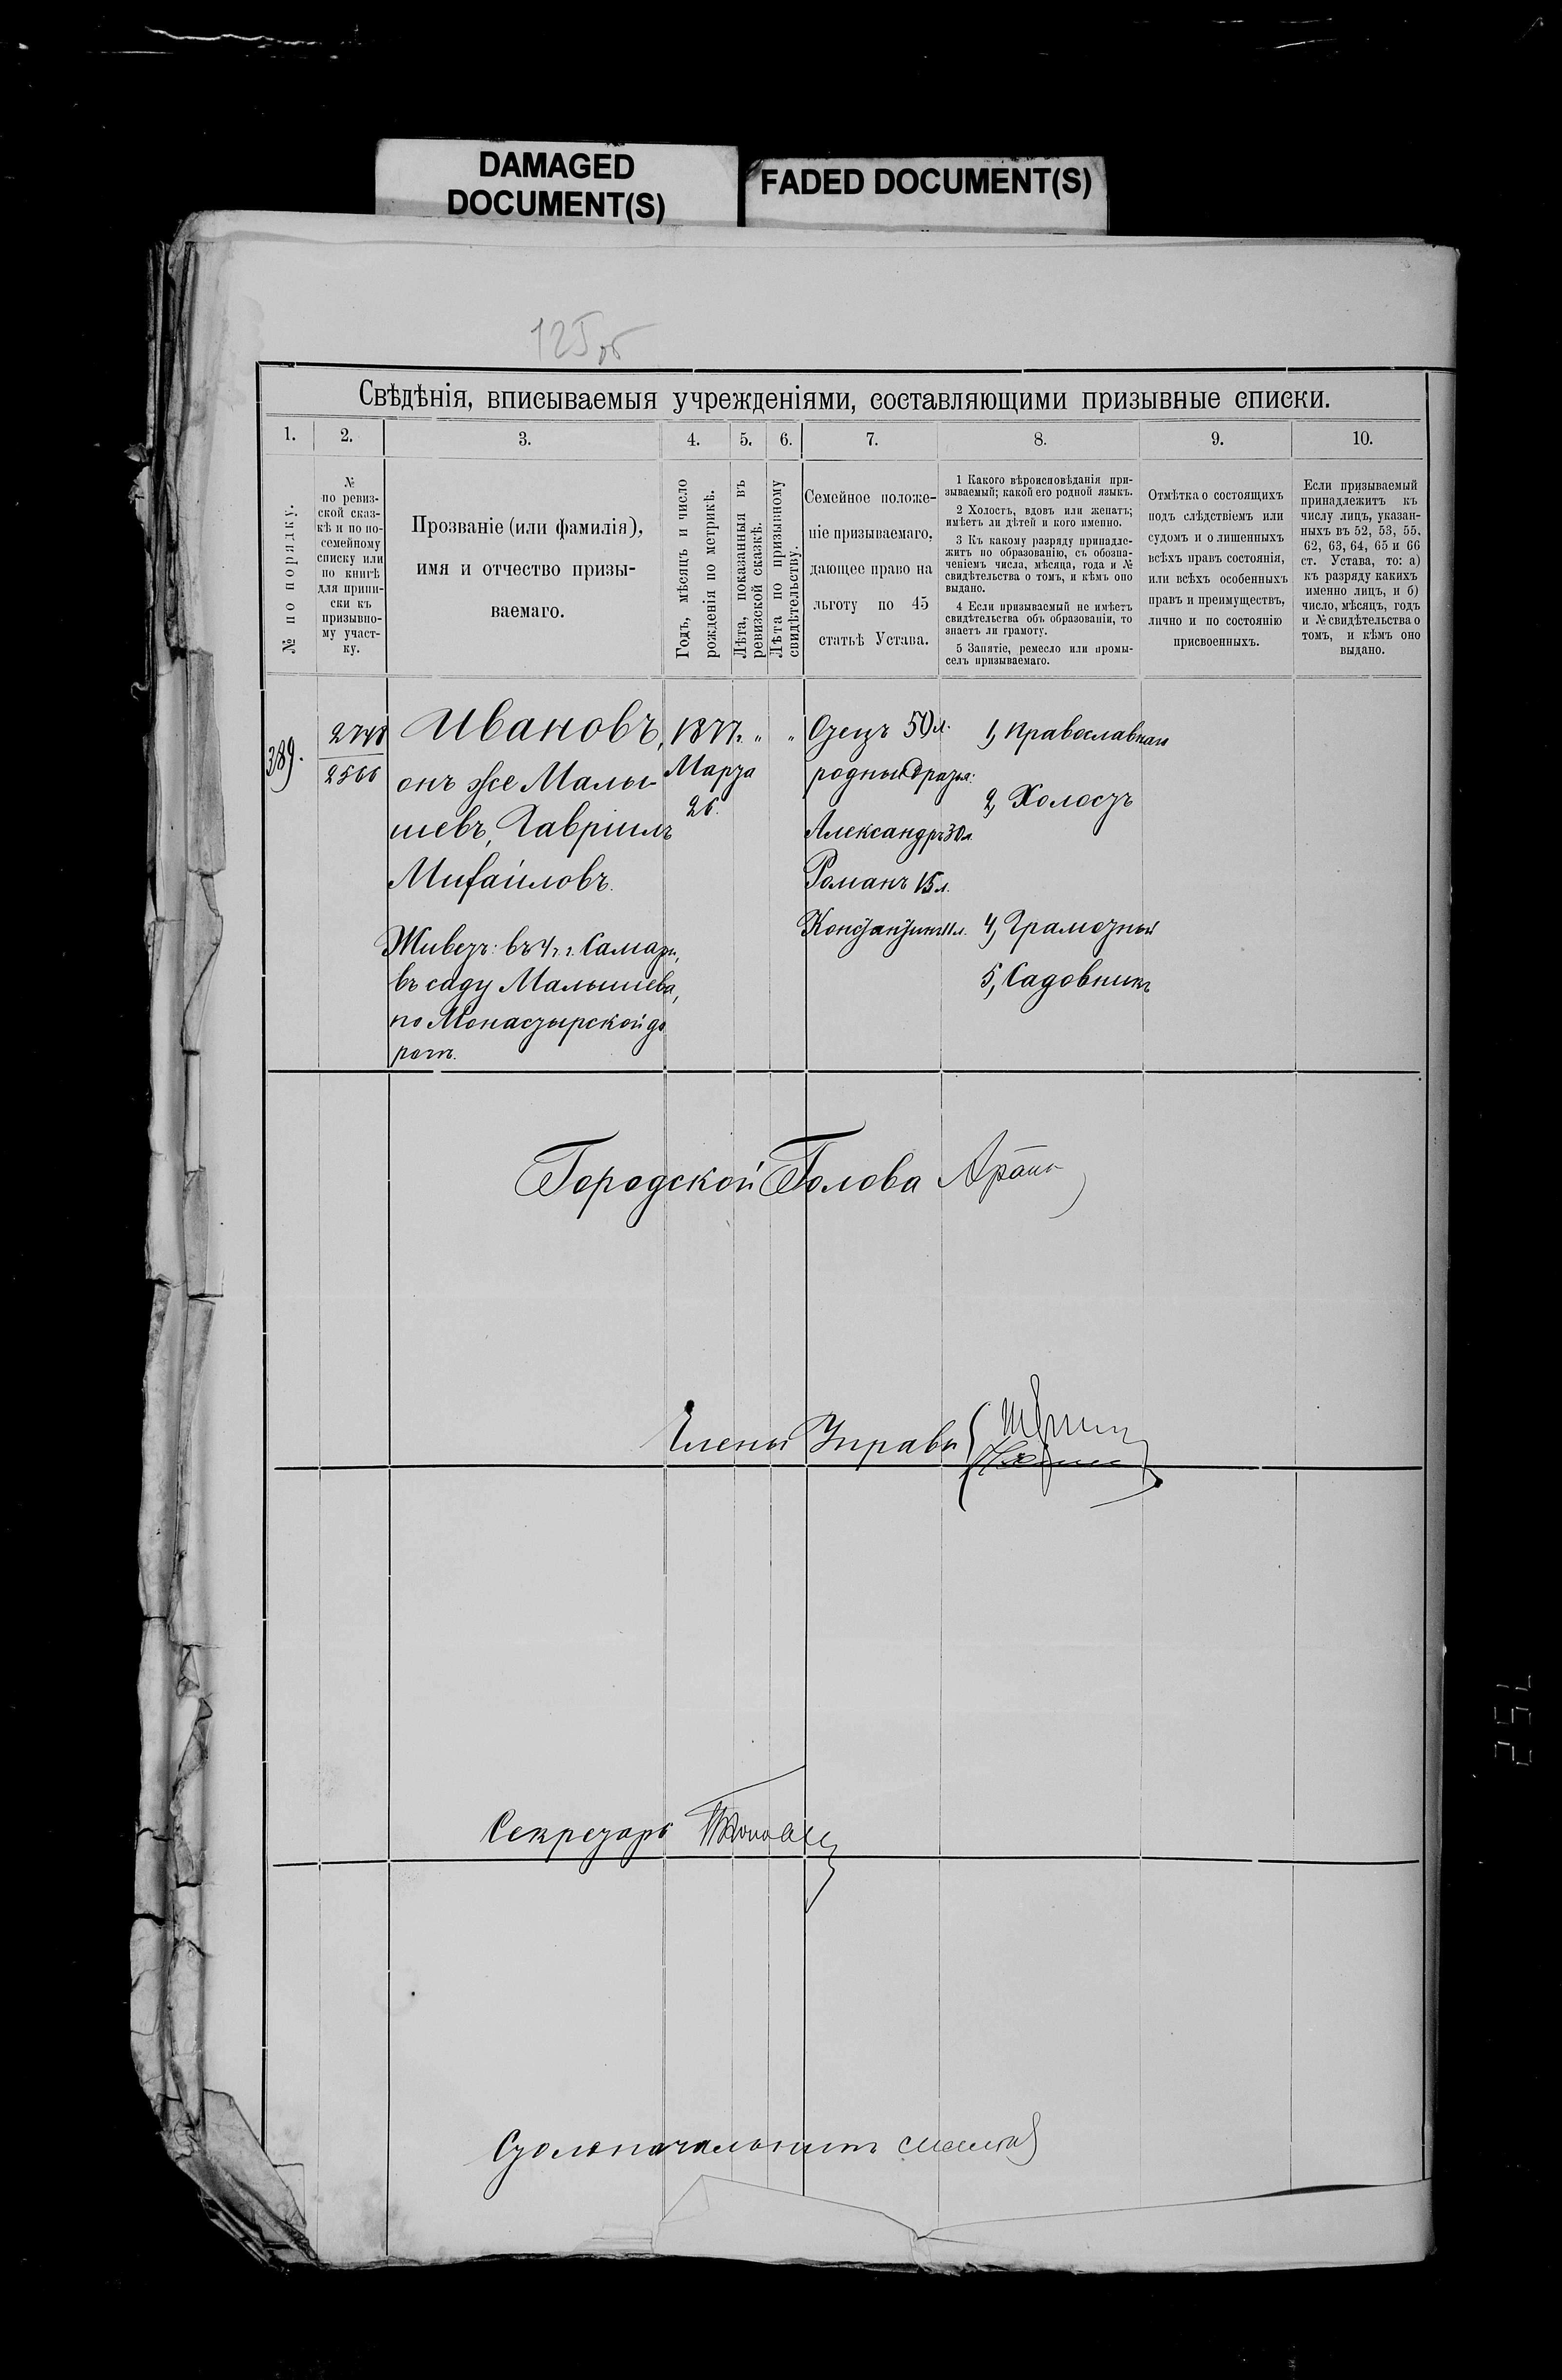 DAMAGED
DOCUMENT(S)
FADED DOCUMENT(S)
125об
Свѣдѣнія, вписываемыя учрежденіями, составляющими призывные списки.
1. 2. 3. 4. 5. 6. 7. 8. 9. 10.
№ по порядку.
№
по ревиз-
ской сказ-
кѣ и по по-
семейному
списку или
по книгѣ
для припи-
ски къ
призывно-
му участ-
ку.
Прозваніе (или фамилія),
имя и отчество призы-
ваемаго.
Годъ, мѣсяцъ и число
рожденія по метрикѣ.
Лѣта, показанныя въ
ревизской сказкѣ.
Лѣта по призывному
свидѣтельству.
Семейное положе-
ніе призываемаго,
дающее право на
льготу по 45
статьѣ Устава.
1 Какого вѣроисповѣданія при-
зываемый; какой его родной языкъ.
2 Холостъ, вдовъ или женатъ;
имѣетъ ли дѣтей и кого именно.
3 Къ какому разряду принадле-
житъ по образованію, съ обозна-
ченіемъ числа, мѣсяца, года и №
свидѣтельства о томъ, и кѣмъ оно
выдано.
4 Если призываемый не имѣетъ
свидѣтельства объ образованіи, то
знаетъ ли грамоту.
5 Занятіе, ремесло или промы-
селъ призываемаго.
Отмѣтка о состоящихъ
подъ слѣдствіемъ или
судомъ и о лишенныхъ
всѣхъ правъ состоянія,
или всѣхъ особенныхъ
правъ и преимуществъ,
лично и по состоянію
присвоенныхъ.
Если призываемый
принадлежитъ къ
числу лицъ, указан-
ныхъ въ 52, 53, 55,
62, 63, 64, 65 и 66
ст. Устава, то: а)
къ разряду какихъ
именно лицъ, и б)
число, мѣсяцъ, годъ
и № свидѣтельства о
томъ, и кѣмъ оно
выдано.
389.
2566
Ивановъ,
онъ же Малы-
шевъ, Гавріилъ
Михайловъ.
Живетъ: въ 4 ч. г. Самары,
въ саду Малышева,
по Монастырской до
рогѣ.
1877г. " "
Марта
26.
Отецъ 50 л.
родныя братья:
Александръ 30 л.
Романъ 15 л.
Константинъ 11 л.
1, Православнаго
2, Холостъ
4, Грамотный
5, Садовникъ
Городской Голова
Члены Управы
Секретарь
Столоначальникъ
252